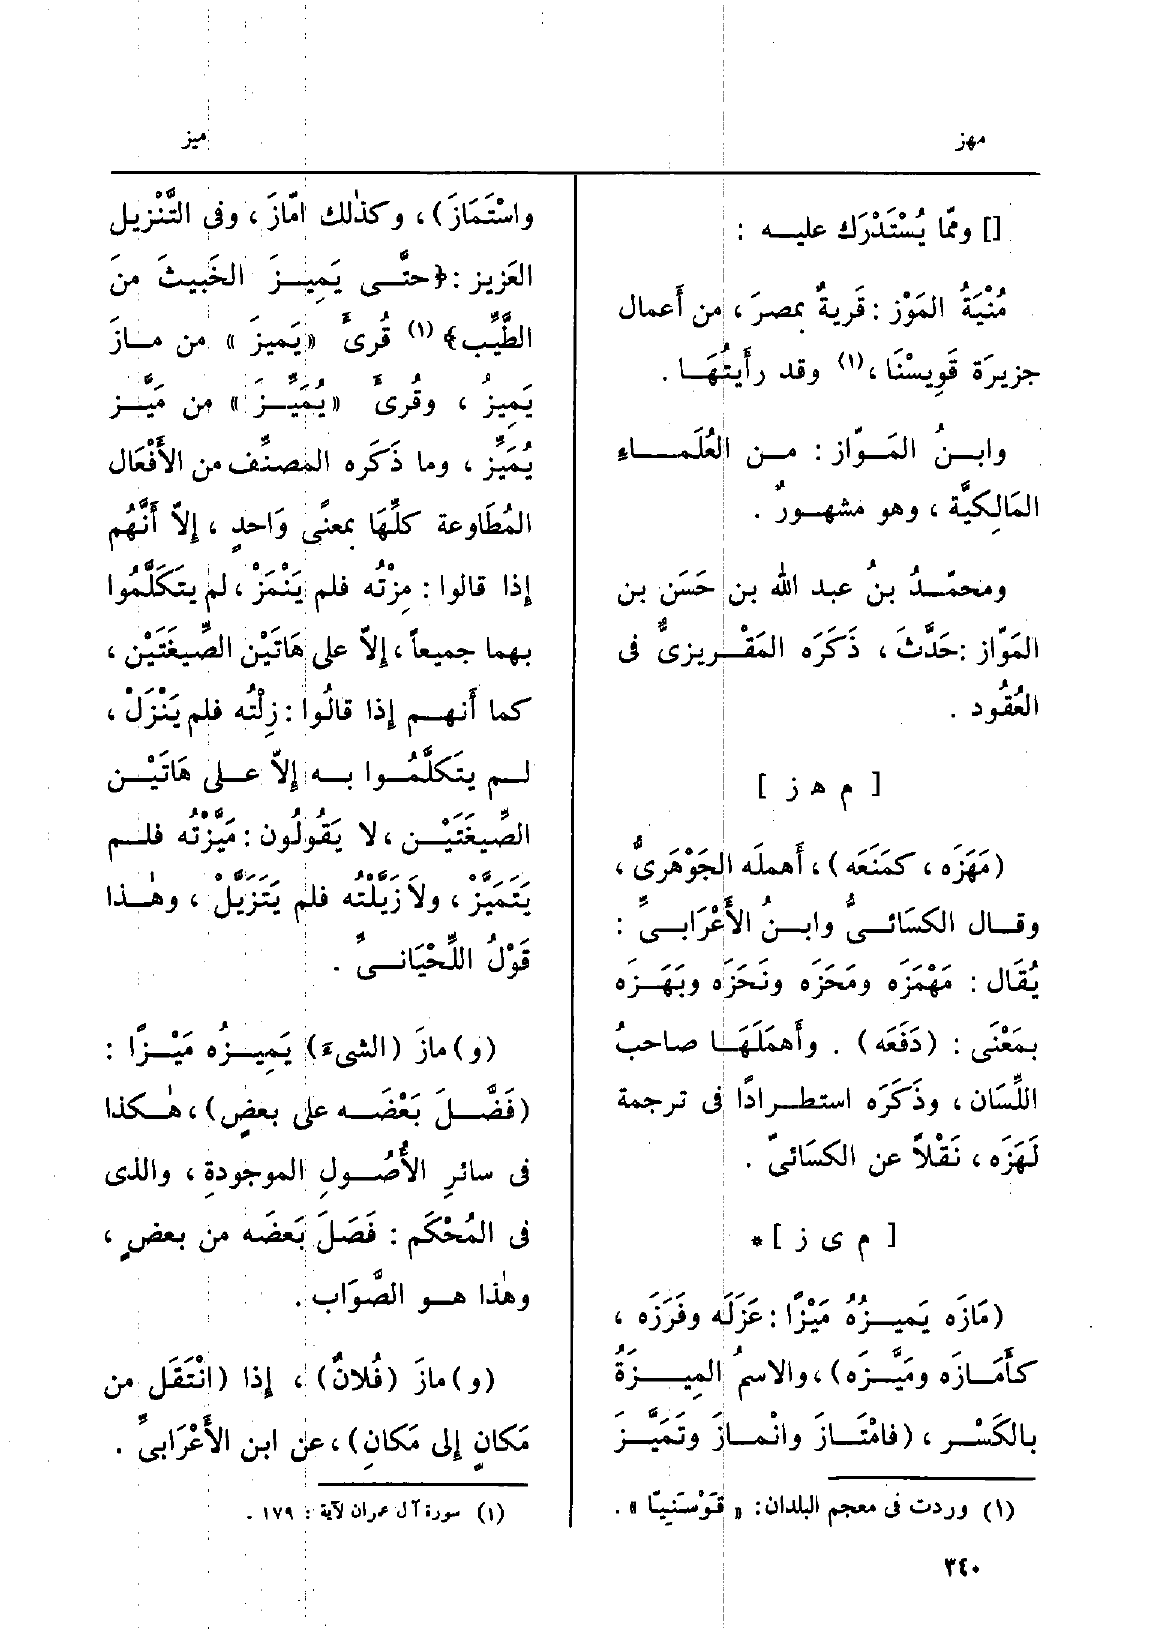 مهز
ميز
[] وممّا يُسْتَدْرَك عليــه :
مُنْيَةُ المَوْز : قَريةٌ بمصرَ ، من أَعمال
جزيرَة قَوِيسْنَا ،(١) وقد رأَيتُهَــا .
وابــنُ المَــوّاز : مــن العُلَمــاءِ
المَالِكيَّة ، وهو مشهــورٌ .
ومحمّــدُ بنُ عبد الله بن حَسَن بن
المَوّاز : حَدَّثَ ، ذَكَرَه المَقْــريزىُّ فى
العُقُود .
[ م ه ز ]
(مَهَزَه ، كمَنَعَه) ، أَهملَه الجَوْهَرىُّ ،
وقــال الكسَائــىُّ وابــنُ الأَعْرَابــىِّ :
يُقَال : مَهْمَزَه ومَحَزَه ونَحَزَه وبَهَــزَه
بمَعْنَى : (دَفَعَه) . وأَهمَلَهَــا صاحبُ
اللِّسَان ، وذَكَرَه استطــرادًا فى ترجمة
لَهَزَه ، نَقْلاً عن الكسَائىّ .
[ م ى ز ] *
(مَازَه يَميــزُهُ مَيْزًا : عَزَلَه وفَرَزَه ،
كأَمَــازَه ومَيَّــزَه) ، والاسمُ المِيــزَةُ
بالكَسْــر ، (فامْتَــازَ وانْمــازَ وتَمَيَّــزَ
(١) وردت فى معجم البلدان : « قَوْسَنِيّا » .
واسْتَمَازَ) ، وكذٰلك امّازَ ، وفى التَّنْزيل
العَزيز : ﴿حتَّــى يَمِيــزَ الخَبيثَ منَ
الطَّيِّب﴾ (١) قُرىءَ «يَميزَ» من مــازَ
يَمِيزُ ، وقُرىءَ «يُمَيِّــزَ» من مَيَّــز
يُمَيِّزُ ، وما ذَكَره المصنِّف من الأَفْعَال
المُطَاوعة كلِّهَا بمعنًى وَاحدٍ ، إلاّ أَنَّهُم
إذا قالوا : مِزْتُه فلم يَنْمَزْ ، لم يتكَلَّمُوا
بهما جميعاً ، إلاّ على هَاتَيْن الصِّيغَتَيْن ،
كما أَنهــم إذا قالُوا : زِلْتُه فلم يَنْزَلْ ،
لــم يتكَلَّمُــوا بــه إلاّ عــلى هَاتَيْــن
الصِّيغَتَيْــن ، لا يَقُولُون : مَيَّزْتُه فلــم
يَتَمَيَّزْ ، ولاَ زَيَّلْتُه فلم يَتَزَيَّلْ ، وهٰــذا
قَوْلُ اللِّحْيَانــىِّ .
(و) مازَ (الشىءَ) يَمِيــزُه مَيْــزًا :
(فَضَّــلَ بَعْضَــه على بعضٍ) ، هٰــكذا
فى سائرِ الأُصُــولِ الموجودةِ ، والذى
فى المُحْكَم : فَصَلَ بَعضَه من بعضٍ ،
وهٰذا هــو الصَّوَاب .
(و) مازَ (فُلانٌ) ، إذا (انْتَقَل من
مَكانٍ إلى مَكانٍ) ، عن ابن الأَعْرَابىِّ .
(١) سورة آل عمران لآية : ١٧٩ .
٣٤٠